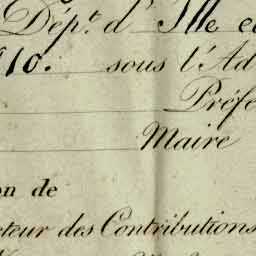 Dépt. d'Ille e
10. sous l'Ad
Préfe
Maire
on de
cteur des Contributions